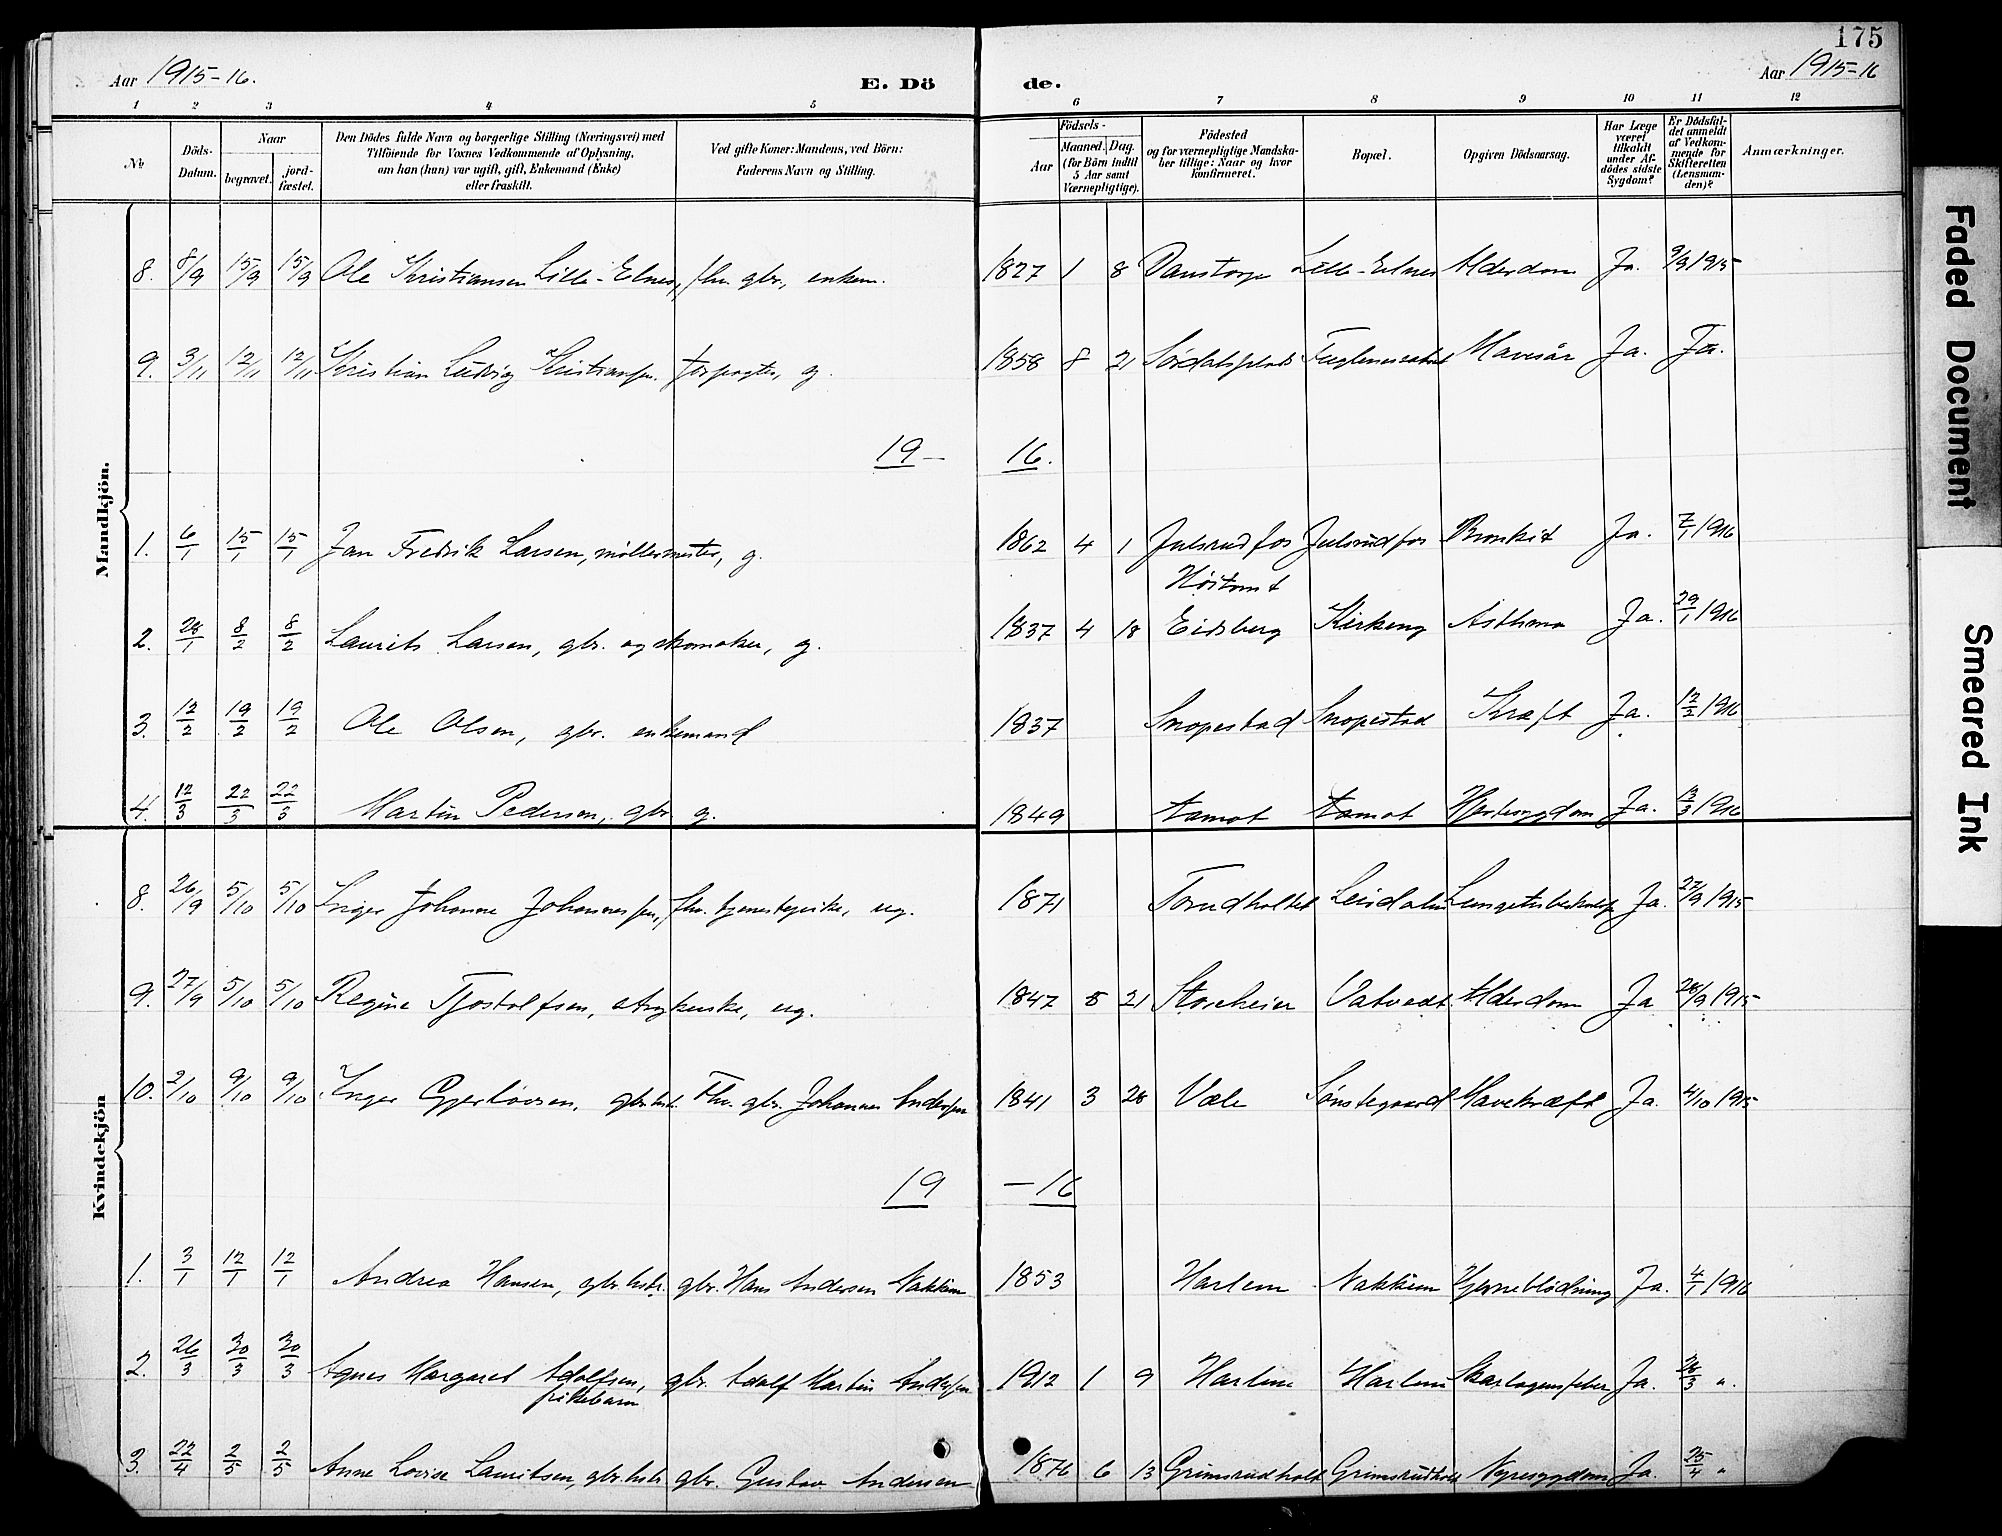 175
Aar 1915-16. E. Dö de. Aar 1915-16
1 2 3 4 5 6 7 8 9 10 11 12
No
Döds-Datum.
Naar
begravet.
jord-fæstet.
Den Dödes fulde Navn og borgerlige Stilling (Næringsvei) med
Tilföiende for Voxnes Vedkommende af Oplysning,
om han (hun) var ugift, gift, Enkemand (Enke)
eller fraskilt.
Ved gifte Koner: Mandens, ved Börn:
Faderens Navn og Stilling.
Födsels-
Aar
Maaned. Dag.
(for Börn indtil
5 Aar samt
Værnepligtige).
Födested
og for værnepligtige Mandska-
ber tillige: Naar og hvor
konfirmeret.
Bopæl.
Opgiven Dödsaarsag.
Har Læge
været
tilkaldt
under Af-
dödes sidste
Sygdom?
Er Dödsfal-
det anmeldt
af Vedkom-
mende for
Skifteretten
(Lensman-
den)?
Anmærkninger.
Mandkjön.
8. 8/9 15/9 15/9 Ole Kristiansen Lille-Elnes, fhv. gbr., enkem. 1827 1 8 Lille-Elnes Alderdom Ja. 9/9 1915
9. 3/11 12/11 12/11 Kristian Ludvig Kristiansen. forpagter, g. 1858 8 21 Mavesår Ja. Ja.
19- 16.
1. 6/1 15/1 15/1 Jan Fredrik Larsen, møllermester, g. 1862 4 1 Julsrudfos Julsrudfos Bronkit Ja. 7/1 1916
Høitomt
2. 28/1 8/2 8/2 Laurits Larsen, gbr. og skomaker, g. 1837 4 18 Eidsberg Kirkeng Asthma Ja. 29/1 1916
3. 12/2 19/2 19/2 Ole Olsen, gbr. enkemand 1837 Snopestad Snopestad Kræft Ja. 12/2 1916
4. 12/3 22/3 22/3 Martin Pedersen, gbr g. 1849 Aamot Aamot Hjertesygdom Ja. 13/3 1916
Kvindekjön
8. 26/9 5/10 5/10 Inger Johanne Johannessen, fhv. tjenestepike, ug. 1871 Ja. 27/9 1915
9. 27/9 5/10 5/10 Regine Tjostolfsen, ug. 1847 8 21 Storeheier Vatvedt Alderdom Ja 28/9 1915
10. 2/10 9/10 9/10 Inger gbr.hst. Fhv. gbr. Johannes Andersen 1841 3 28 Væle Sønstegaard Mavekræft Ja. 4/10 1915
19 -16
1. 3/1 12/1 12/1 Andrea Hansen, gbr.hst. gbr. Hans Andersen Nakkim 1853 Harlem Nakkim Hjerneblødning Ja. 4/1 1916
2. 26/3 30/3 30/3 Agnes Margaret Adolfsen, gbr. Adolf Martin Andersen 1912 1 9 Harlem Harlem Skarlagensfeber Ja. 28/3 "
pikebarn
3. 22/4 2/5 2/5 Anne Lovise Lauritsen, gbr.hst. gbr. Gustav Andersen 1876 6 13 Grimsrudholt Grimsrudholt Nyresygdom Ja. 25/4 "
Faded Document
Smeared Ink